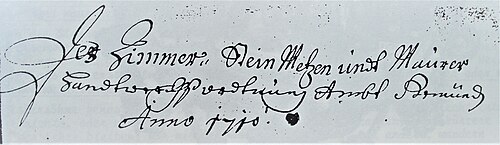 Der Zimmer: Stein Metzen undt Maurer
Handtwerckhs ordtnung Ambt Gmündt
Anno 1710.